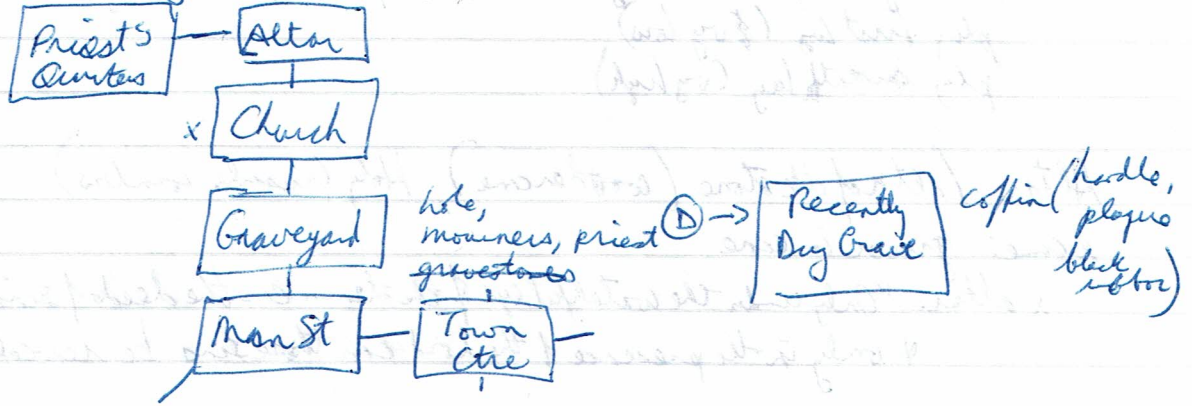 Priest's
Quarters
Altar
x
Church
Graveyard
hole,
mourners, priest
gravestones
D
Recently
Dug Grave
coffin (handle,
plaque
black
ribbon)
Main St
Town
Ctre